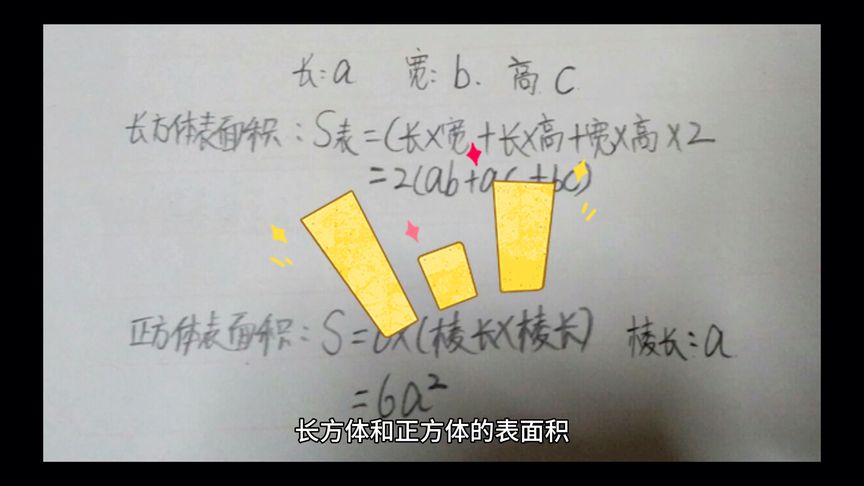 长:a 宽:b. 高 c
长方体表面积:S表=(长×宽+长×高+宽×高×2
=2(ab+ac+bc)
正方体表面积:S=6×(棱长×棱长) 棱长:a
=6a²
长方体和正方体的表面积